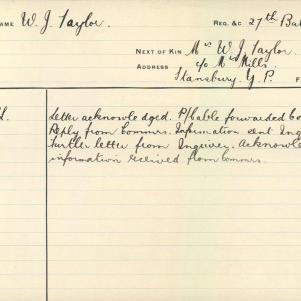 NAME W. J. Taylor. REG. &C 27th Bat
NEXT OF KIN Mrs W. J. Taylor.
ADDRESS c/o Mrs Mills.
Stansbury. Y. P.
Letter acknowledged. P/Cable forwarded Co
Reply from Commrs. Information sent Inq
Further letter from Inquirer. Acknowle
information received from Commrs.